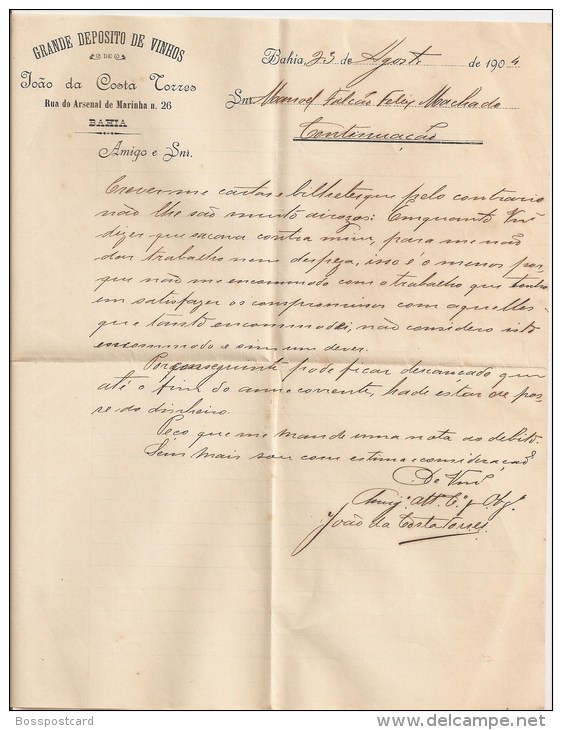 GRANDE DEPOSITO DE VINHOS
DE
João da Costa Torres
Rua do Arsenal de Marinha n. 26
BAHIA
Amigo e Snr.
Bahia, 23 de Agosto de 1904
Snr Manoel Falcão Felix Machado
Continuação
Escrever-me cartas e bilhetes que pelo contrario
não lhe são muito airozos: Emquanto Vmcê
dizer que sacava contra mim, para me não
dar trabalho nem despeza, isso é o menos por-
que não me encommodo com o trabalho que tenho
em satisfazer os compromissos com aquelles
que tanto encommodei, não considero isto
encommodo e sim um dever.
Por conseguinte pode ficar descançado que
até o fim do anno corrente, hade estar de pos-
se do dinheiro.
Peço que me mande uma nota do debito.
Sem mais sou com estima e consideração
De Vmcê
Amigº. Attº. Cº. e Obgº.
João da Costa Torres
Bosspostcard
www.delcampe.net